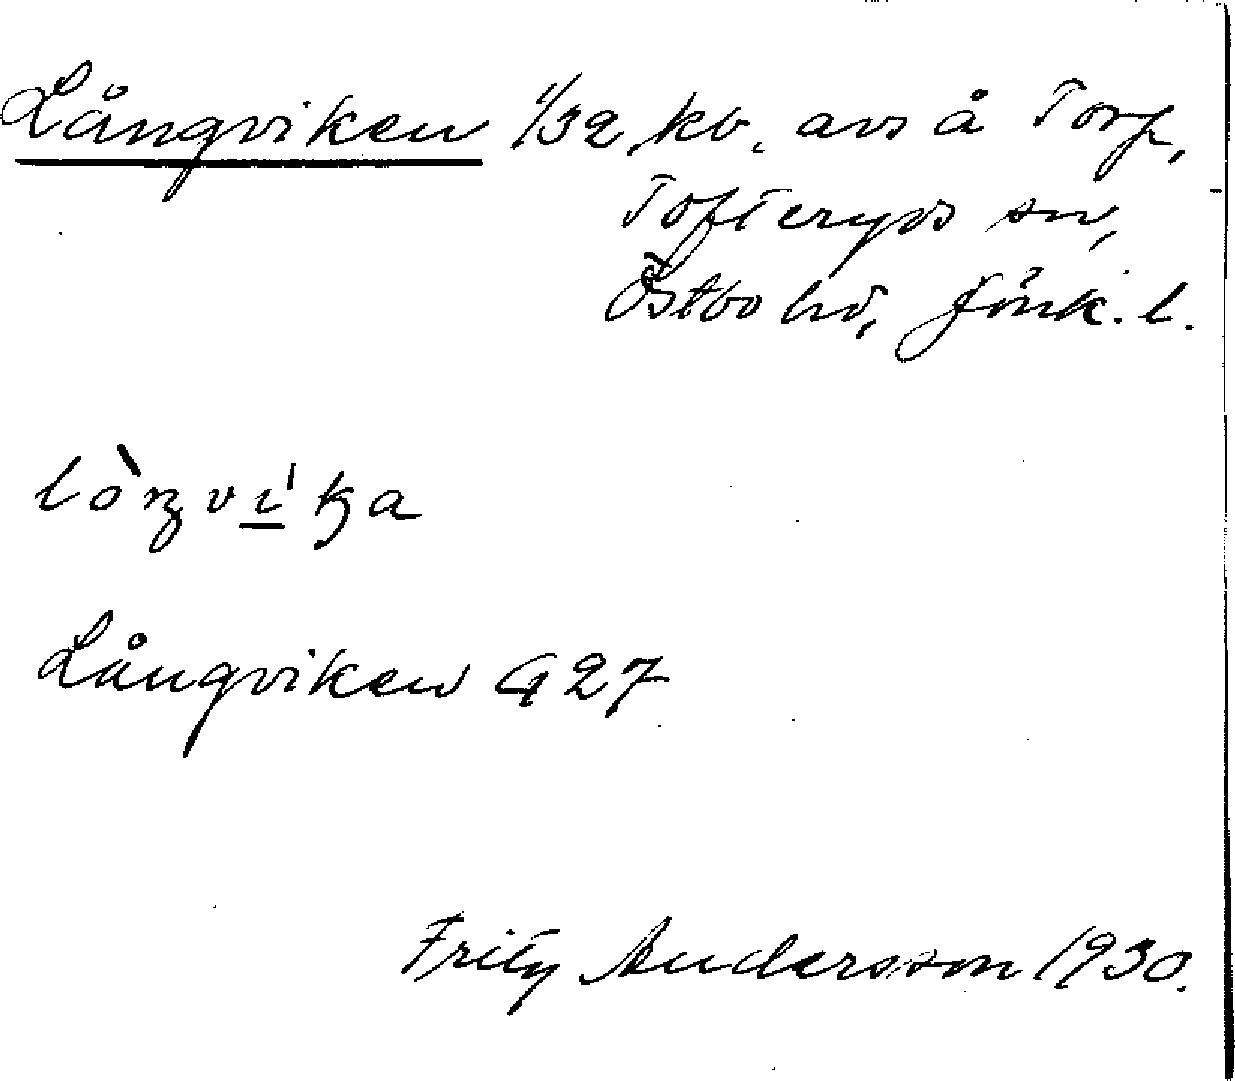 Långviken 1/32 kv. avs å Torp,
Tofteryds sn,
Östbo hd, Jönk. l.
Långviken G 27
Fritz Andersson 1930.